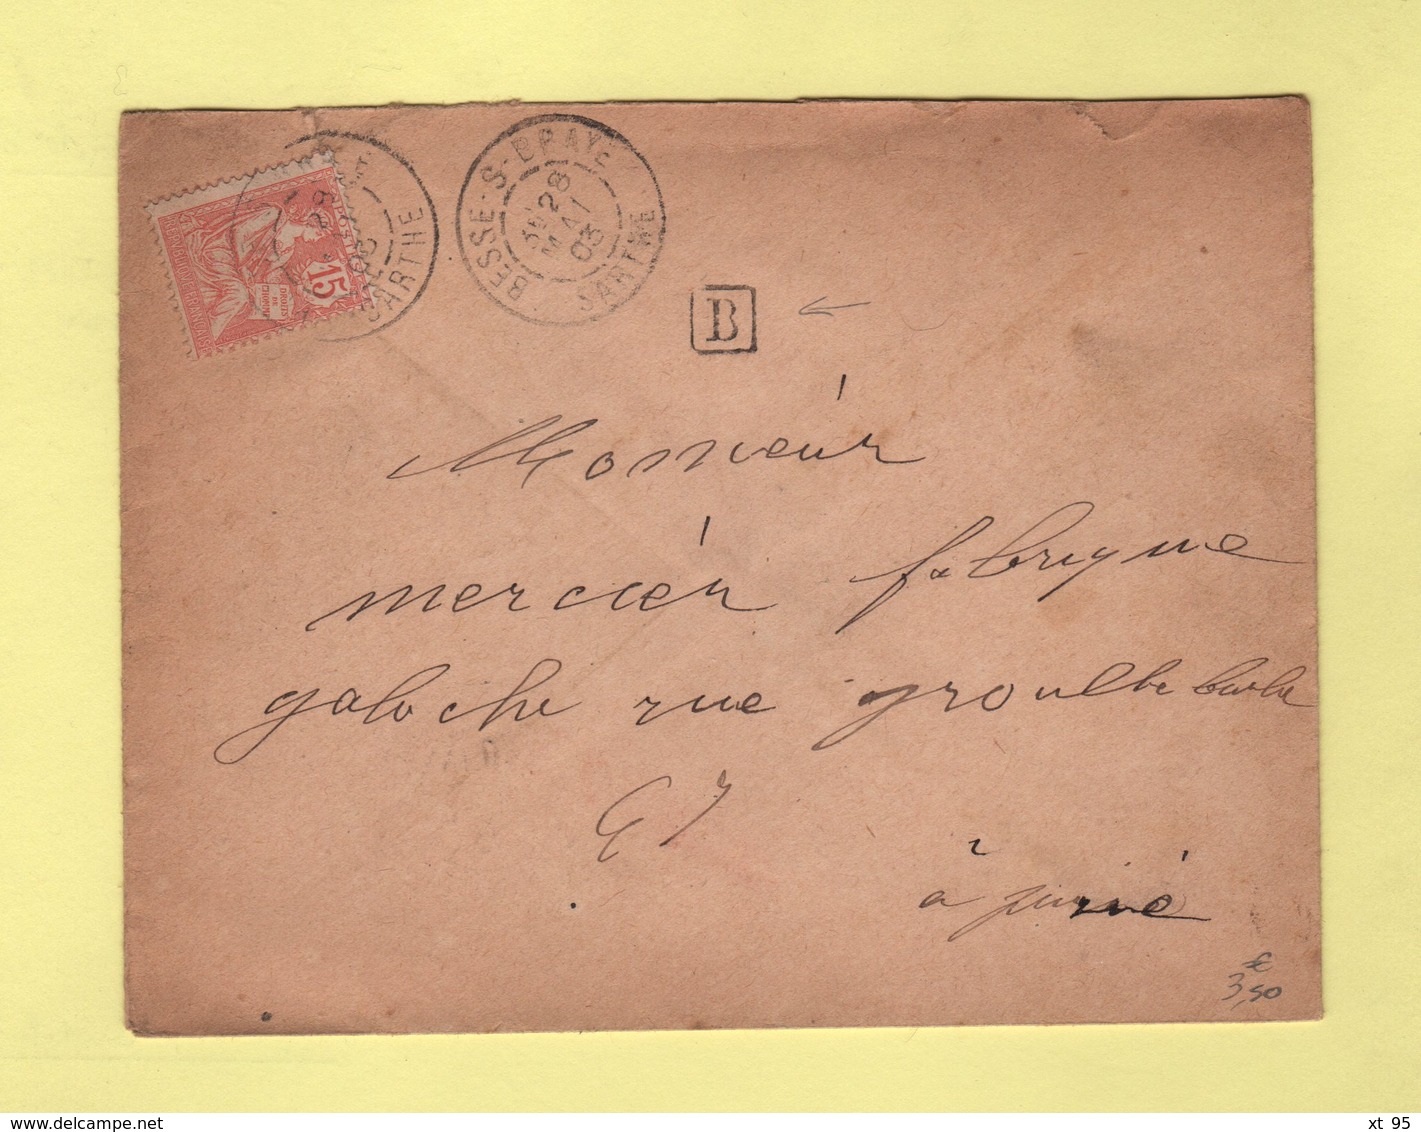 BESSE-S-BRAYE
28
MAI
03
SARTHE
29
03
SARTHE
POSTES
15
DROITS
DE
L'HOMME
REPUBLIQUE FRANÇAISE
B
Monsieur
mercier fabrique
galoche rue groulbe barbe
47
à
€
3,50
www.delcampe.net
xt 95